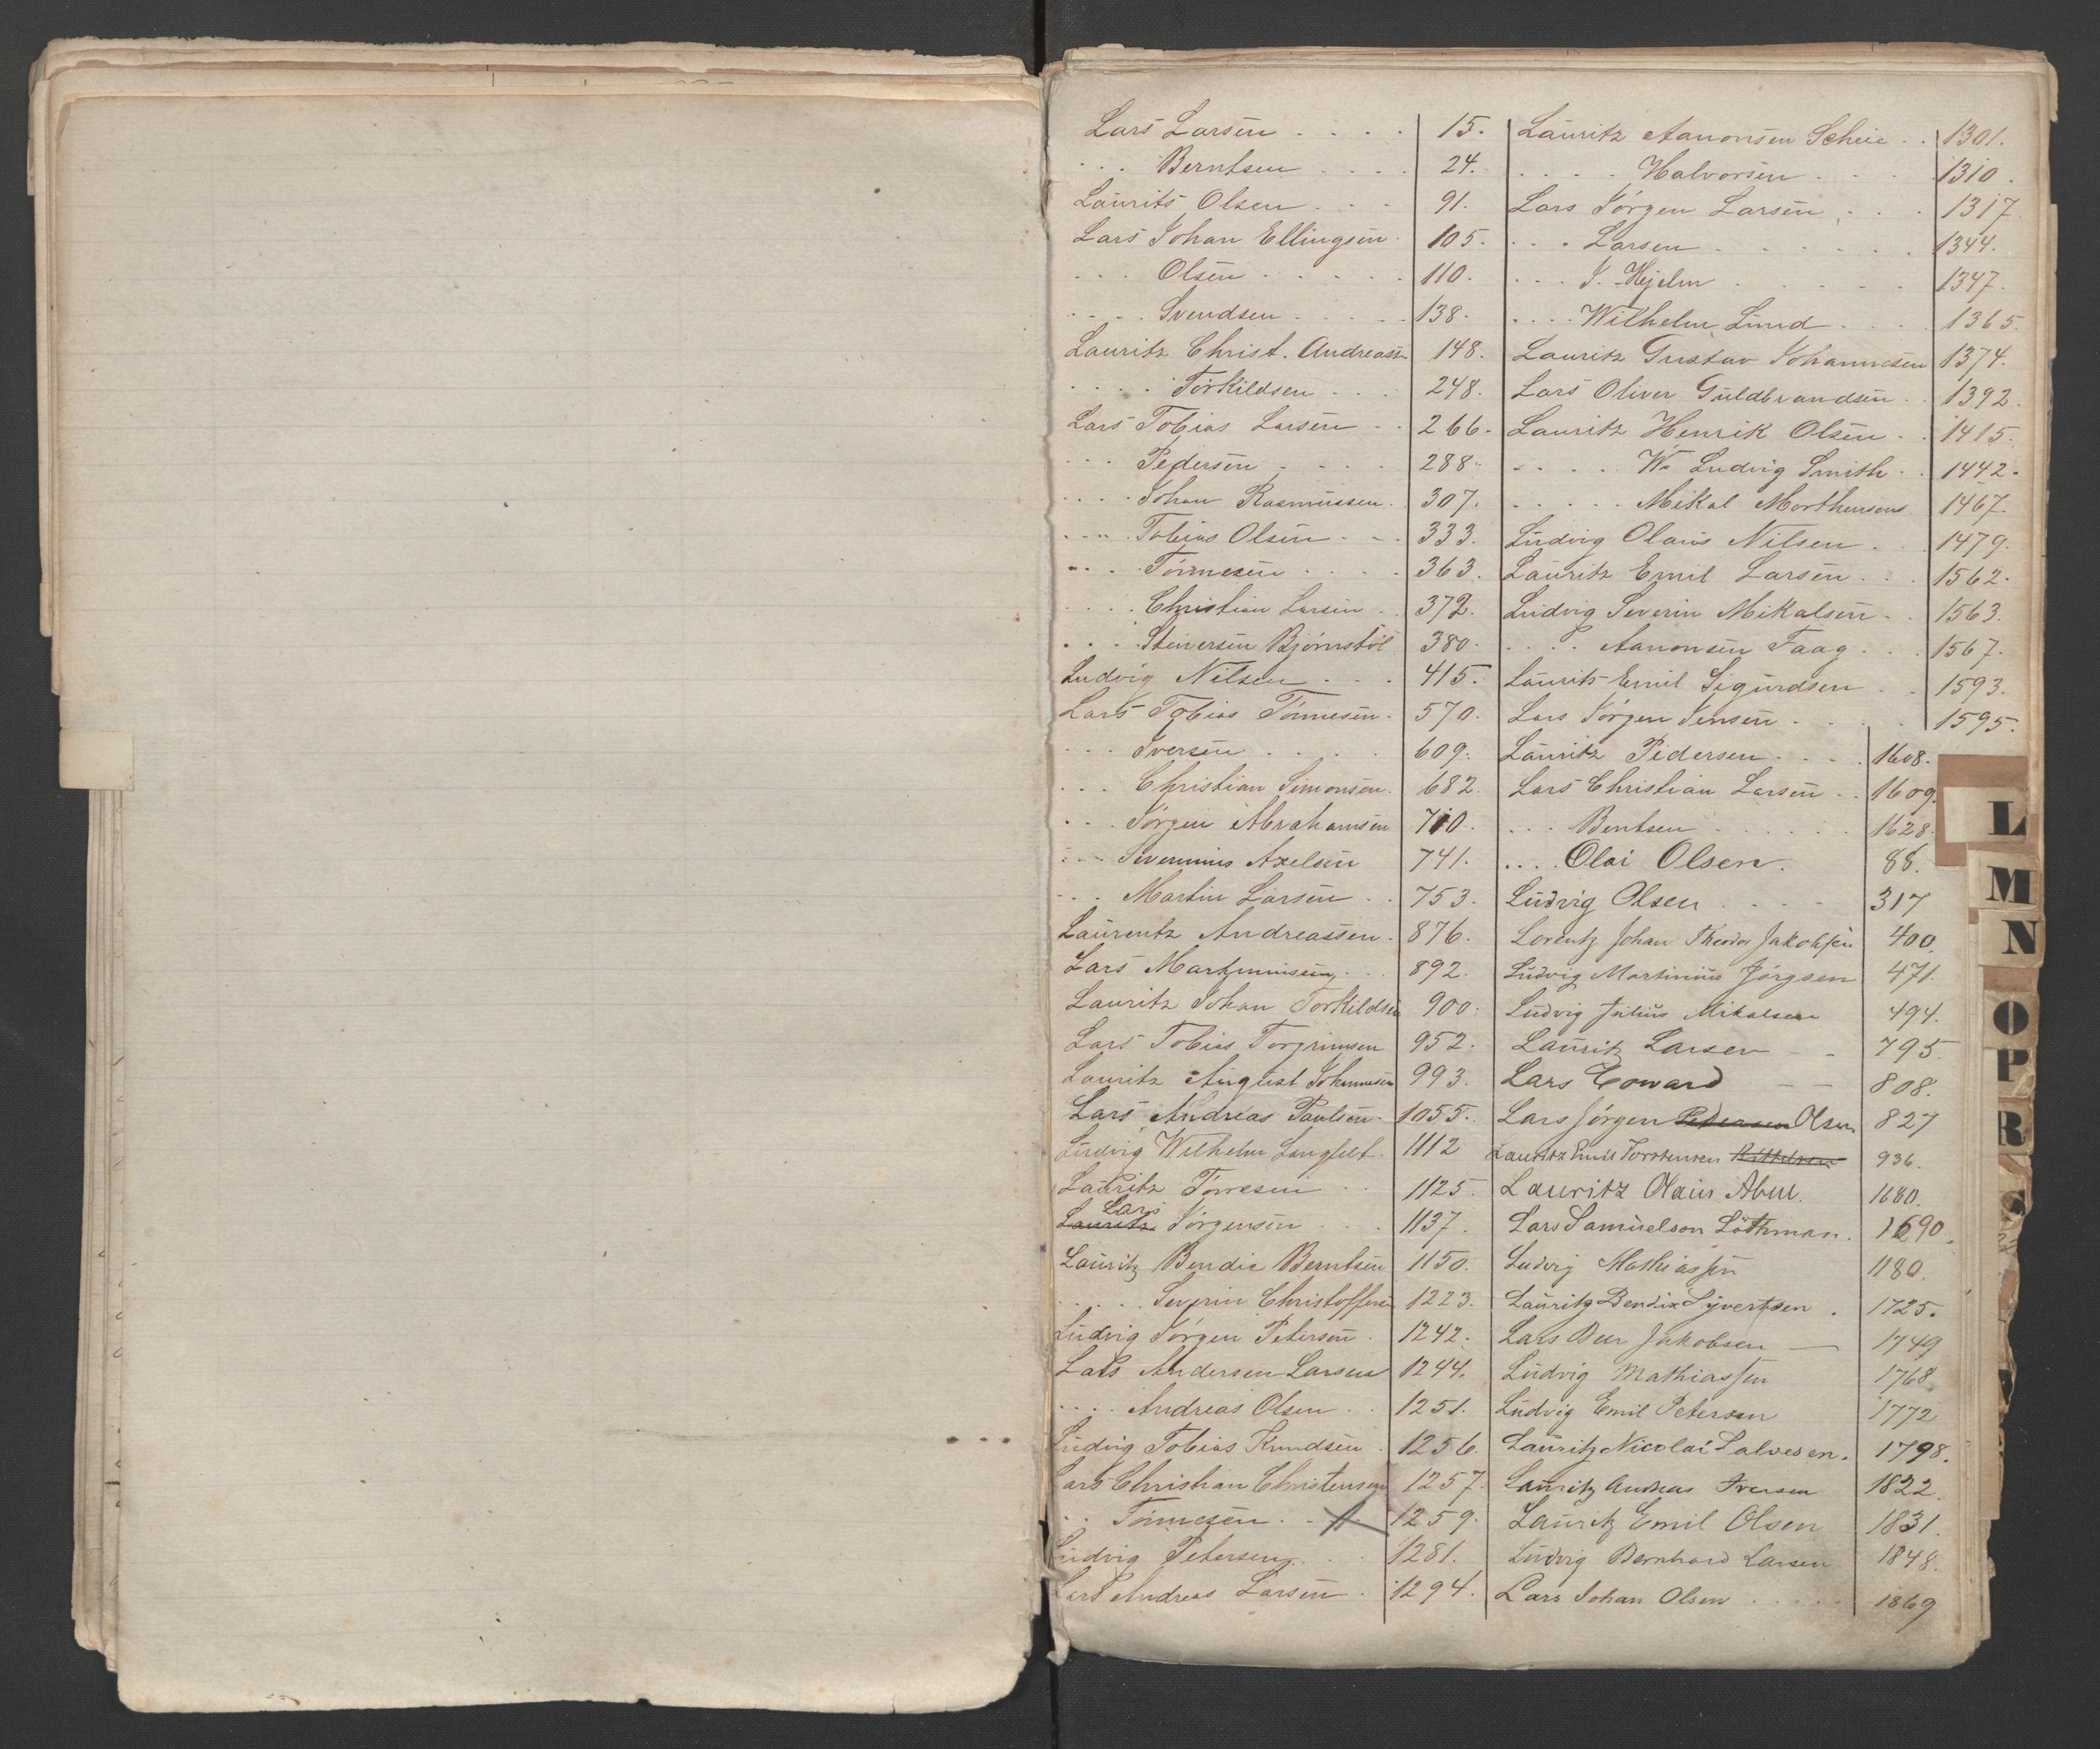 Lars Larsen . . . . 15.
. . . Berntsen . . . . 24.
Laurits Olsen . . . 91.
Lars Johan Ellingsen . 105.
. . . Olsen . . . . . 110.
. . . . Svendsen . . . . . 138.
Lauritz Christ. Andreassn 148.
. . . . . Torkildsen . . . 248.
Lars Tobias Larsen . . 266.
. . . Pedersen . . . . 288.
. . . . Johan Rasmussen . 307.
. . . . Tobias Olsen . . . 333.
. . . . Tönnesen . . . . 363.
. . . . Christian Larsen . . 372.
. . . . Steinersen Björnstöl 380.
Ludvig Nilsen . . . 415.
Lars Tobias Tönnesen . 570.
. . . Iversen . . . . 609.
. . . Christian Simonsen . 682.
. . . Jörgen Abrahamsen 710.
. . . Severinius Axelsen 741.
. . . Martin Larsen . . 753.
Laurentz Andreassen . 876.
Lars . . . 892.
Lauritz Johan Torkildsen 900.
Lars Tobias Torgrimsen 952.
Lauritz August Johannesen 993.
Lars Andreas Paulsen . 1055.
Ludvig Wilhelm Langfelt . 1112
Lauritz Tönnesen . . 1125.
Lars
Lauritz Jörgensen . . . 1137.
Lauritz Bendix Berntsen 1150.
. . . . . Severin Christoffersen 1223.
Ludvig Jörgen Petersen . 1242.
Lars Andersen Larsen 1244.
. . . . Andreas Olsen . . 1251.
Ludvig Tobias Knudsen . 1256.
Lars Christian Christensen 1257.
. . . Tönnesen . . 1259.
Ludvig Petersen . . . 1281.
Lars Andreas Larsen . 1294.
Lauritz Aanonsen Scheie . . 1301.
. . . . . Halvorsen . . . . 1310.
Lars Jörgen Larsen . . . 1317.
. . . Larsen . . . . . . 1344.
. . . J. Hejelm . . . . . 1347.
. . . . Wilhelm Lund . . . . 1365.
Lauritz Gustav Johannesen 1374.
Lars Oliver Guldbrandsen . . 1392.
Lauritz Henrik Olsen . . 1415.
. . . . . Wm Ludvig Smith . . 1442.
. . . . . Mikal Morthensens 1467.
Ludvig Olaus Nilsen . . . 1479.
Lauritz Emil Larsen . . . 1562.
Ludvig Severin Mikalsen . . 1563.
. . . . Aanonsen Faag . . . 1567.
Laurits Emil Sigurdsen . . 1593.
Lars Jörgen Jensen . . . . 1595.
Lauritz Pedersen . . . . 1608.
Lars Christian Larsen . . 1609.
. . . Bentsen . . . . . . 1628.
. . . . Olai Olsen. 88.
Ludvig Olsen . . . . . 317
Lorentz Johan Theodor Jakobsen 400.
Ludvig Martinius Jörgsen 471.
Ludvig Julius Mikalsen 494.
Lauritz Larsen — — 795.
Lars Edward — — 808.
Lars Jörgen Pedersen Olsen 827
Lauritz Emil Torstensen Kittelsen 936.
Lauritz Olaus Abul. 1680.
Lars Samuelson Löthman . 1690.
Ludvig Mathiassen 1180.
Lauritz Bendix Syvertsen . 1725.
Lars Jakobsen — 1749
Ludvig Mathiassen 1768
Ludvig Emil Petersen 1772
Lauritz Nicolai Salvesen . 1798.
Lauritz Andreas Iversen 1822.
Lauritz Emil Olsen 1831.
Ludvig Bernhard Larsen 1848.
Lars Johan Olsen . . . . . 1869
L
M
N
O
P
R
S